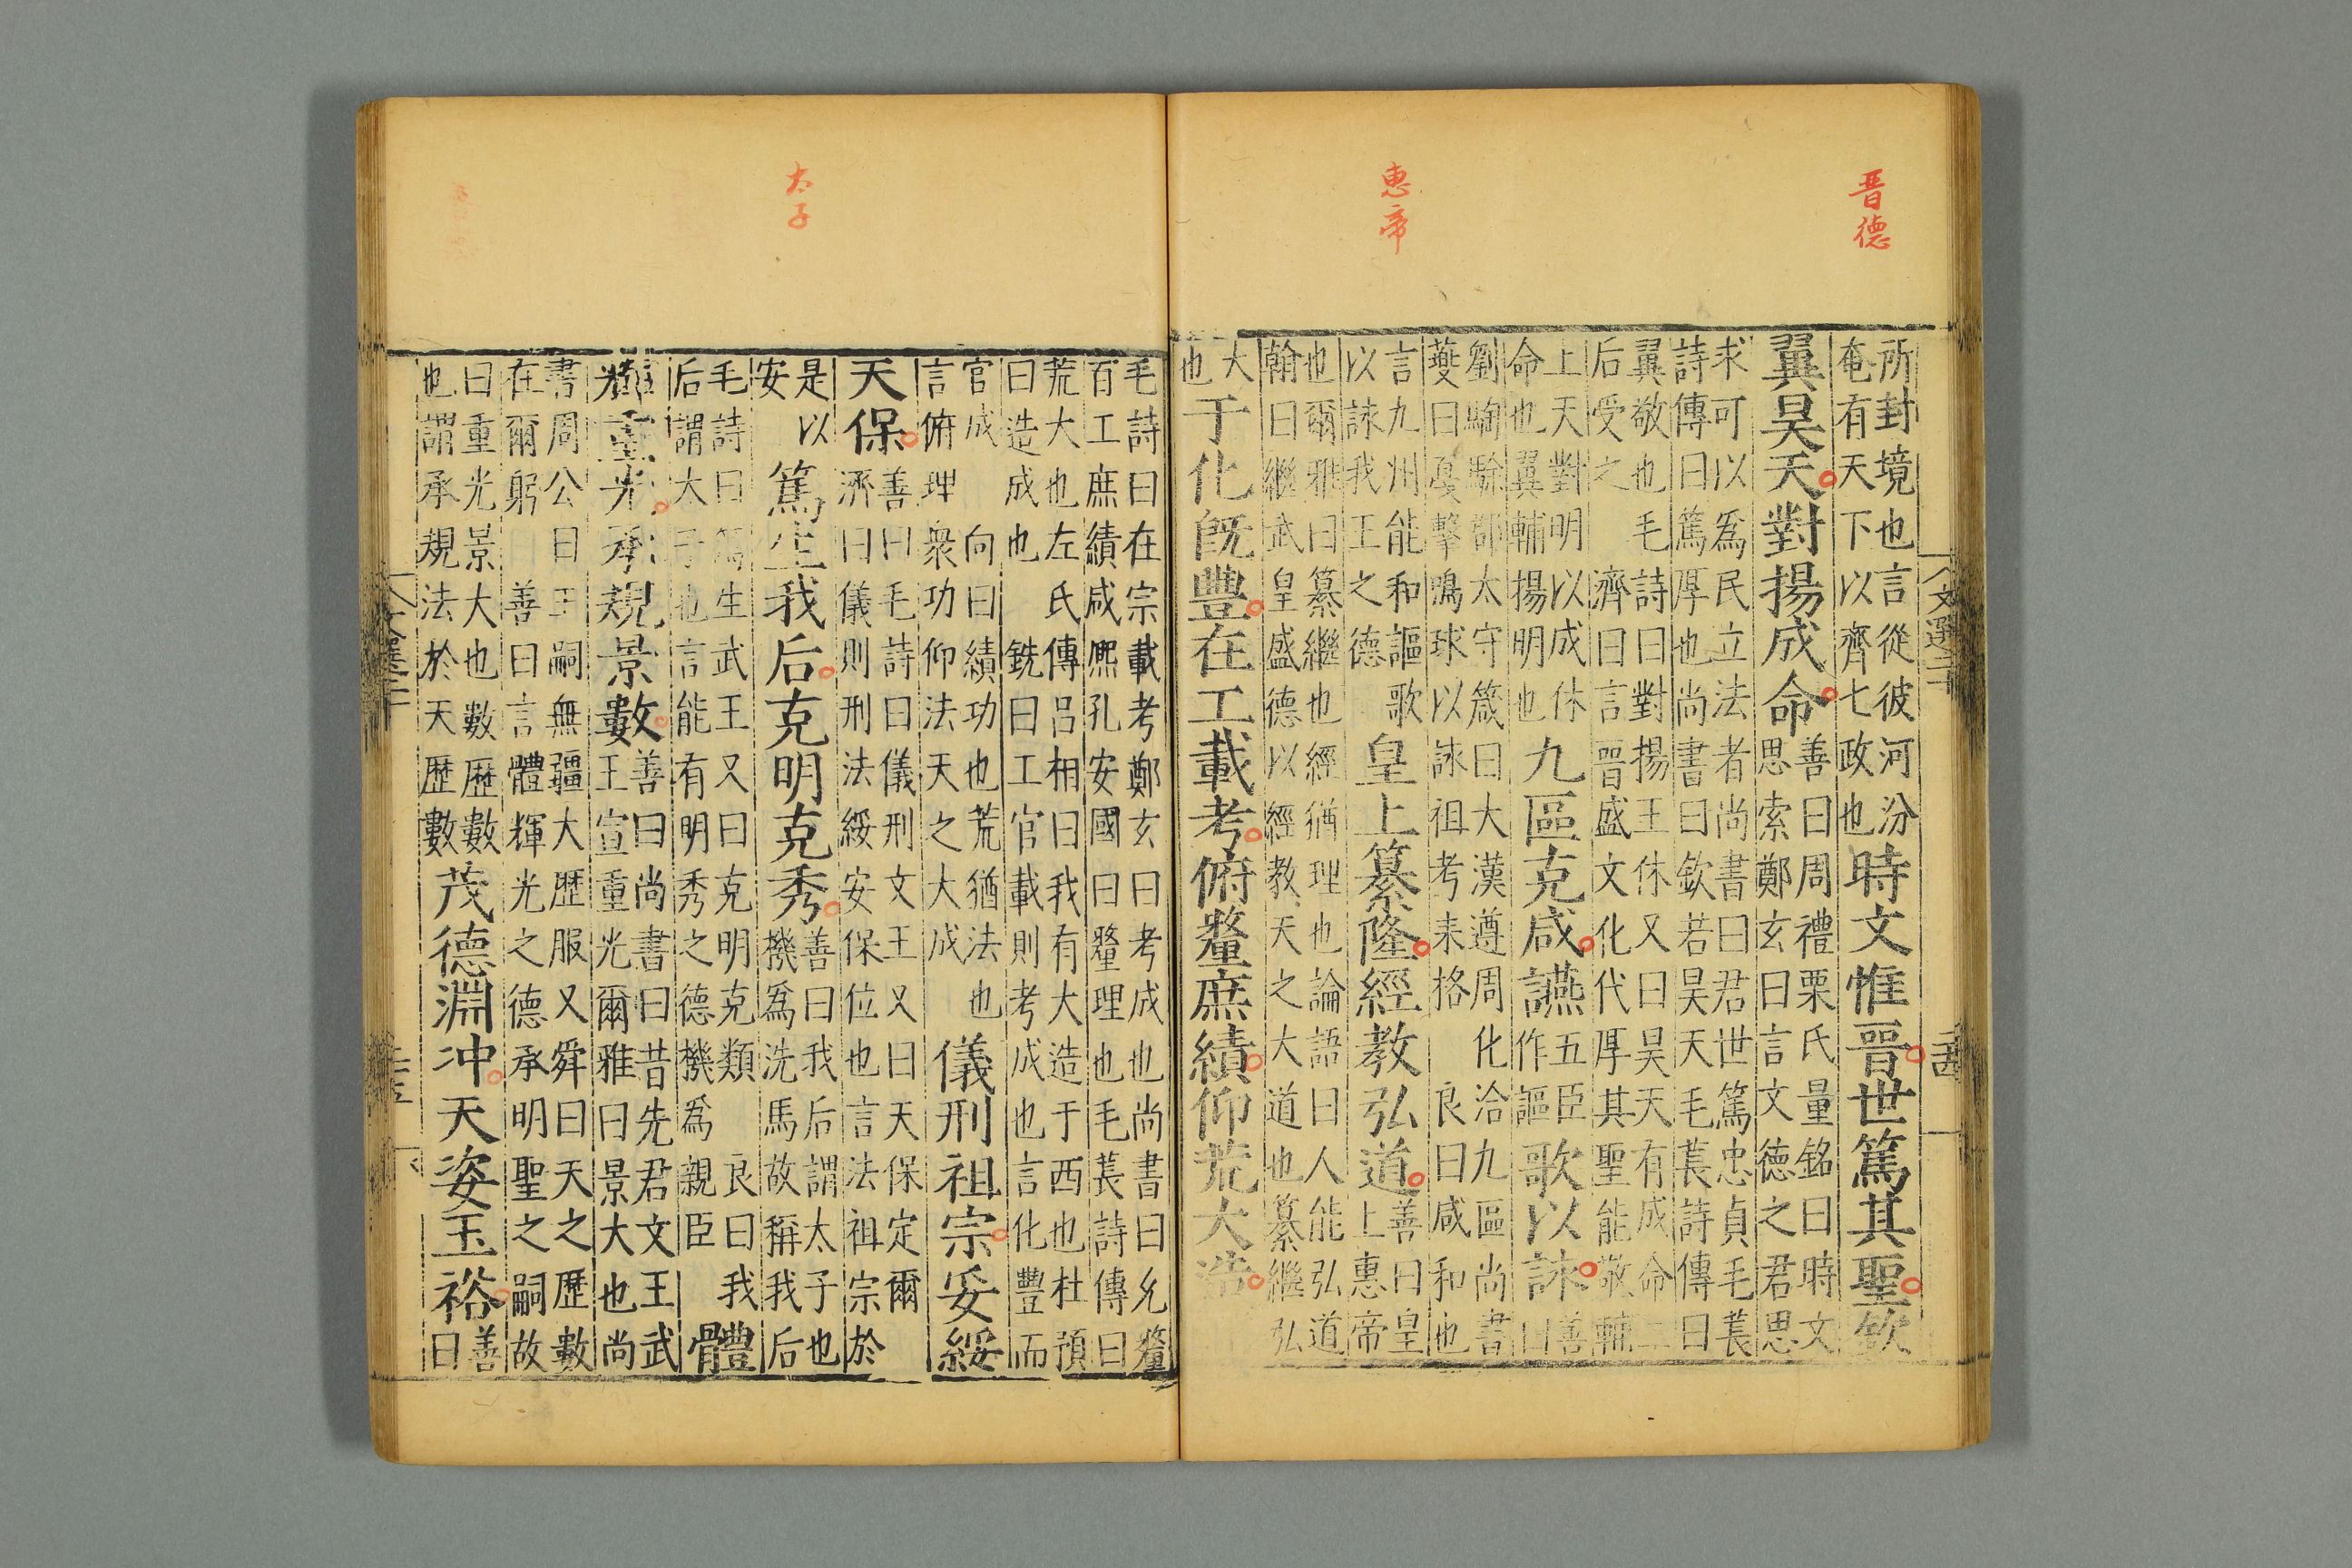 晋德
惠帝
太子
文選二十
所封境也言從彼河汾
奄有天下以齊七政也
時文惟晉世篤其聖欽
翼昊天對揚成命
善曰周禮栗氏量銘曰時文
思索鄭玄曰言文德之君思
求可以爲民立法者尚書曰君世篤忠貞毛萇
詩傳曰篤厚也尚書曰欽若昊天毛萇詩傳曰
翼敬也毛詩曰對揚王休又曰昊天有成命二
后受之濟曰言晉盛文化代厚其聖能敬輔
上天對明以成休
命也翼輔揚明也
九區克咸讌
五臣
作謳
歌以詠
善
曰
劉騊駼郡太守箴曰大漢遵周化洽九區尚書
夔曰戛擊鳴球以詠祖考来格良曰咸和也
言九州能和謳歌
以詠我王之德
皇上纂隆經教弘道
善曰皇
上惠帝
也爾雅曰纂繼也經猶理也論語曰人能弘道
翰曰繼武皇盛德以經教天之大道也纂繼弘
大
也
于化旣豊在工載考俯釐庶績仰荒大造
毛詩曰在宗載考鄭玄曰考成也尚書曰允釐
百工庶績咸熈孔安國曰釐理也毛萇詩傳曰
荒大也左氏傳吕相曰我有大造于西也杜預
曰造成也銑曰工官載則考成也言化豐而
官成向曰績功也荒猶法也
言俯理衆功仰法天之大成
儀刑祖宗妥綏
天保
善曰毛詩曰儀刑文王又曰天保定爾
濟曰儀則刑法綏安保位也言法祖宗於
是以
安
篤生我后克明克秀
善曰我后謂太子也
機爲洗馬故稱我后
毛詩曰篤生武王又曰克明克類良曰我
后謂太子也言能有明秀之德機爲親臣
體
輝重光承規景數
善曰尚書曰昔先君文王武
王宣重光爾雅曰景大也尚
書周公曰王嗣無疆大歴服又舜曰天之歷數
在爾躬善曰言體輝光之德承明聖之嗣故
曰重光景大也數歴數
也謂承規法於天歴數
茂德淵冲天姿玉裕
善
曰